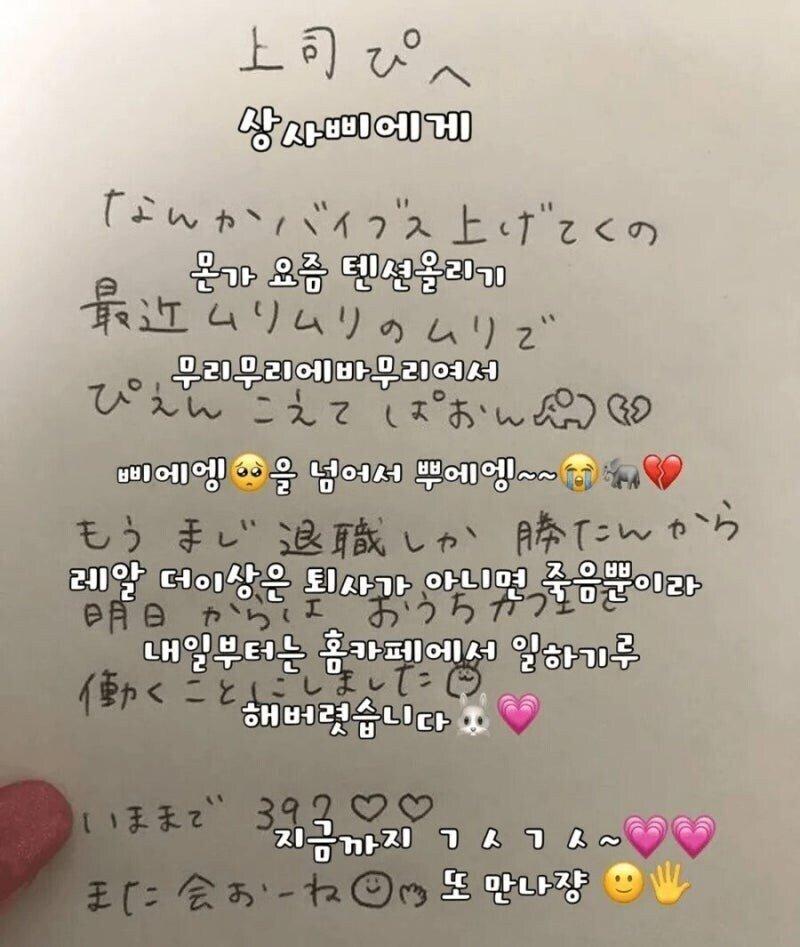 上司ぴへ
상사삐에게
なんかバイブス上げてくの
몬가 요즘 텐션올리기
最近ムリムリのムリで
무리무리에바무리여서
ぴえんこえてぱおん🐘💔
삐에엥🥺을 넘어서 뿌에엥~~😭🐘💔
もうまじ退職しか勝たんから
레알 더이상은 퇴사가 아니면 죽음뿐이라
明日からはおうちカフェで
내일부터는 홈카페에서 일하기루
働くことにしました
해버렷습니다🐰💗
いままで 39? ♡♡
지금까지 ㄱㅅㄱㅅ~💗💗
また会おーね☺
또 만나쟝 🙂🖐